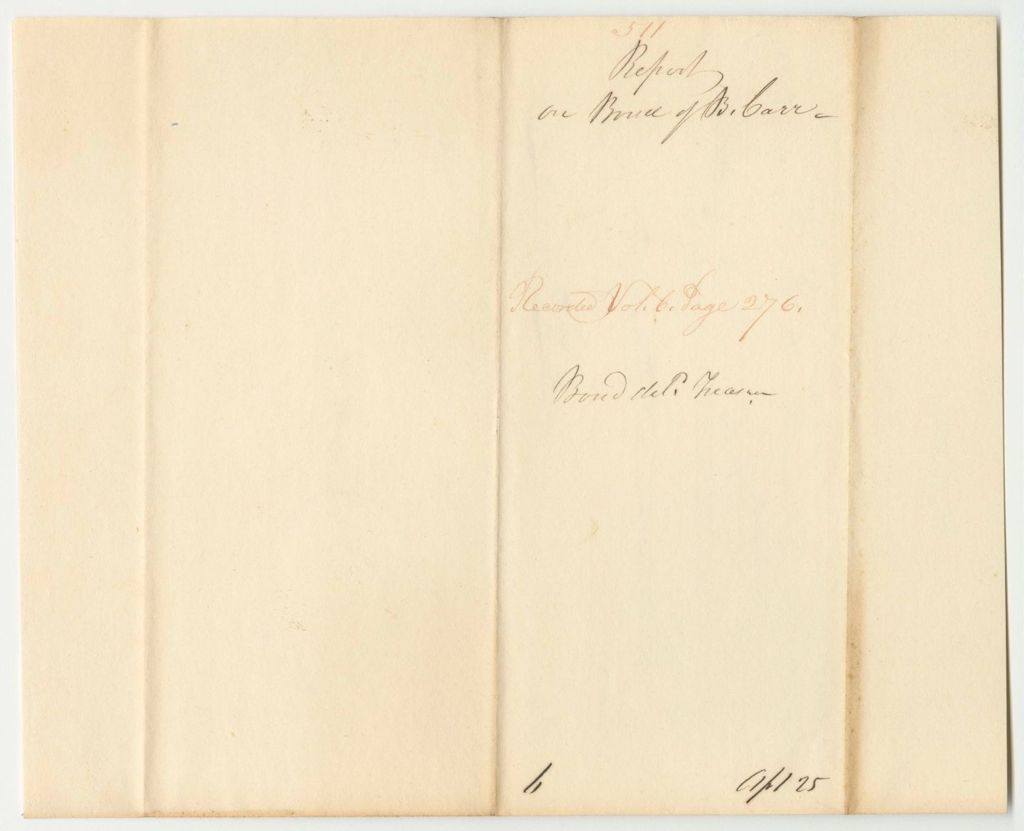 511
Report
on Bond of B. Carr
Recorded Vol. 6. Page 276.
Bond del.d Treasr
6 Apl 25